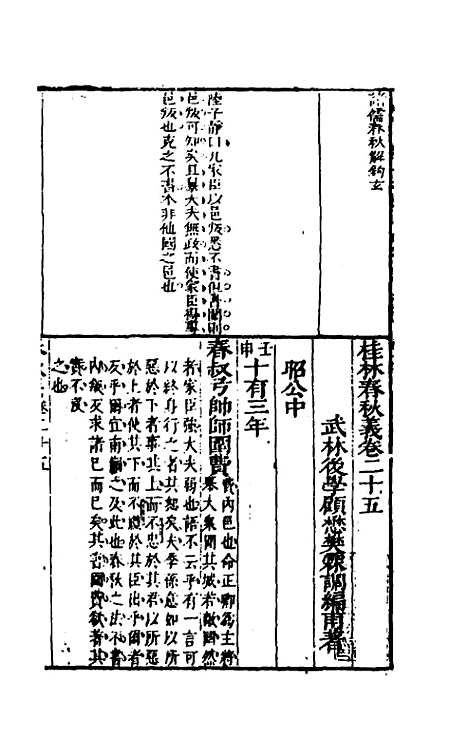 諸儒春秋解鈎玄
陸子靜曰凡家臣以邑叛悉不書但書圍則
邑叛可知矣且舉大夫無政而使家臣得專
邑叛也克之不書本非他國之邑也
桂林春秋義卷二十五
武林後學顧懋樊霖調編甫著
昭公中
壬申
十有三年
春叔弓帥師圍費
費内邑也命正卿爲主將
舉大衆圍其城若敵國然
者家臣強大夫弱也語不云乎有一言可
以終身行之者其恕矣夫季孫意如以所
惡於下者事其上而不忠於其君以所惡
於上者使其下而不禮於其臣出乎爾者
反乎爾宜南蒯之及此也春秋之法不書
内叛反求諸己而已矣其書圍費欲著其
實不没
之也